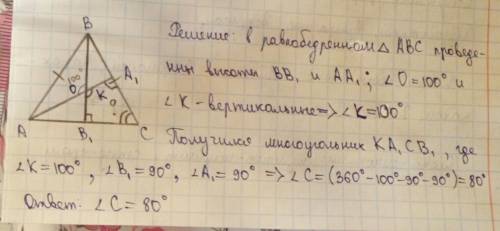 B
100°
A₁
O
K
O
A
B₁
C
Решение: в равнобедренном △ ABC проведе-
нны высоты BB₁ и AA₁; ∠O=100° и
∠K - вертикальные => ∠K=100°
Получился многоугольник KA₁CB₁, где
∠K=100°, ∠B₁=90°, ∠A₁=90° => ∠C=(360°-100°-90°-90°)=80°
Ответ: ∠C=80°